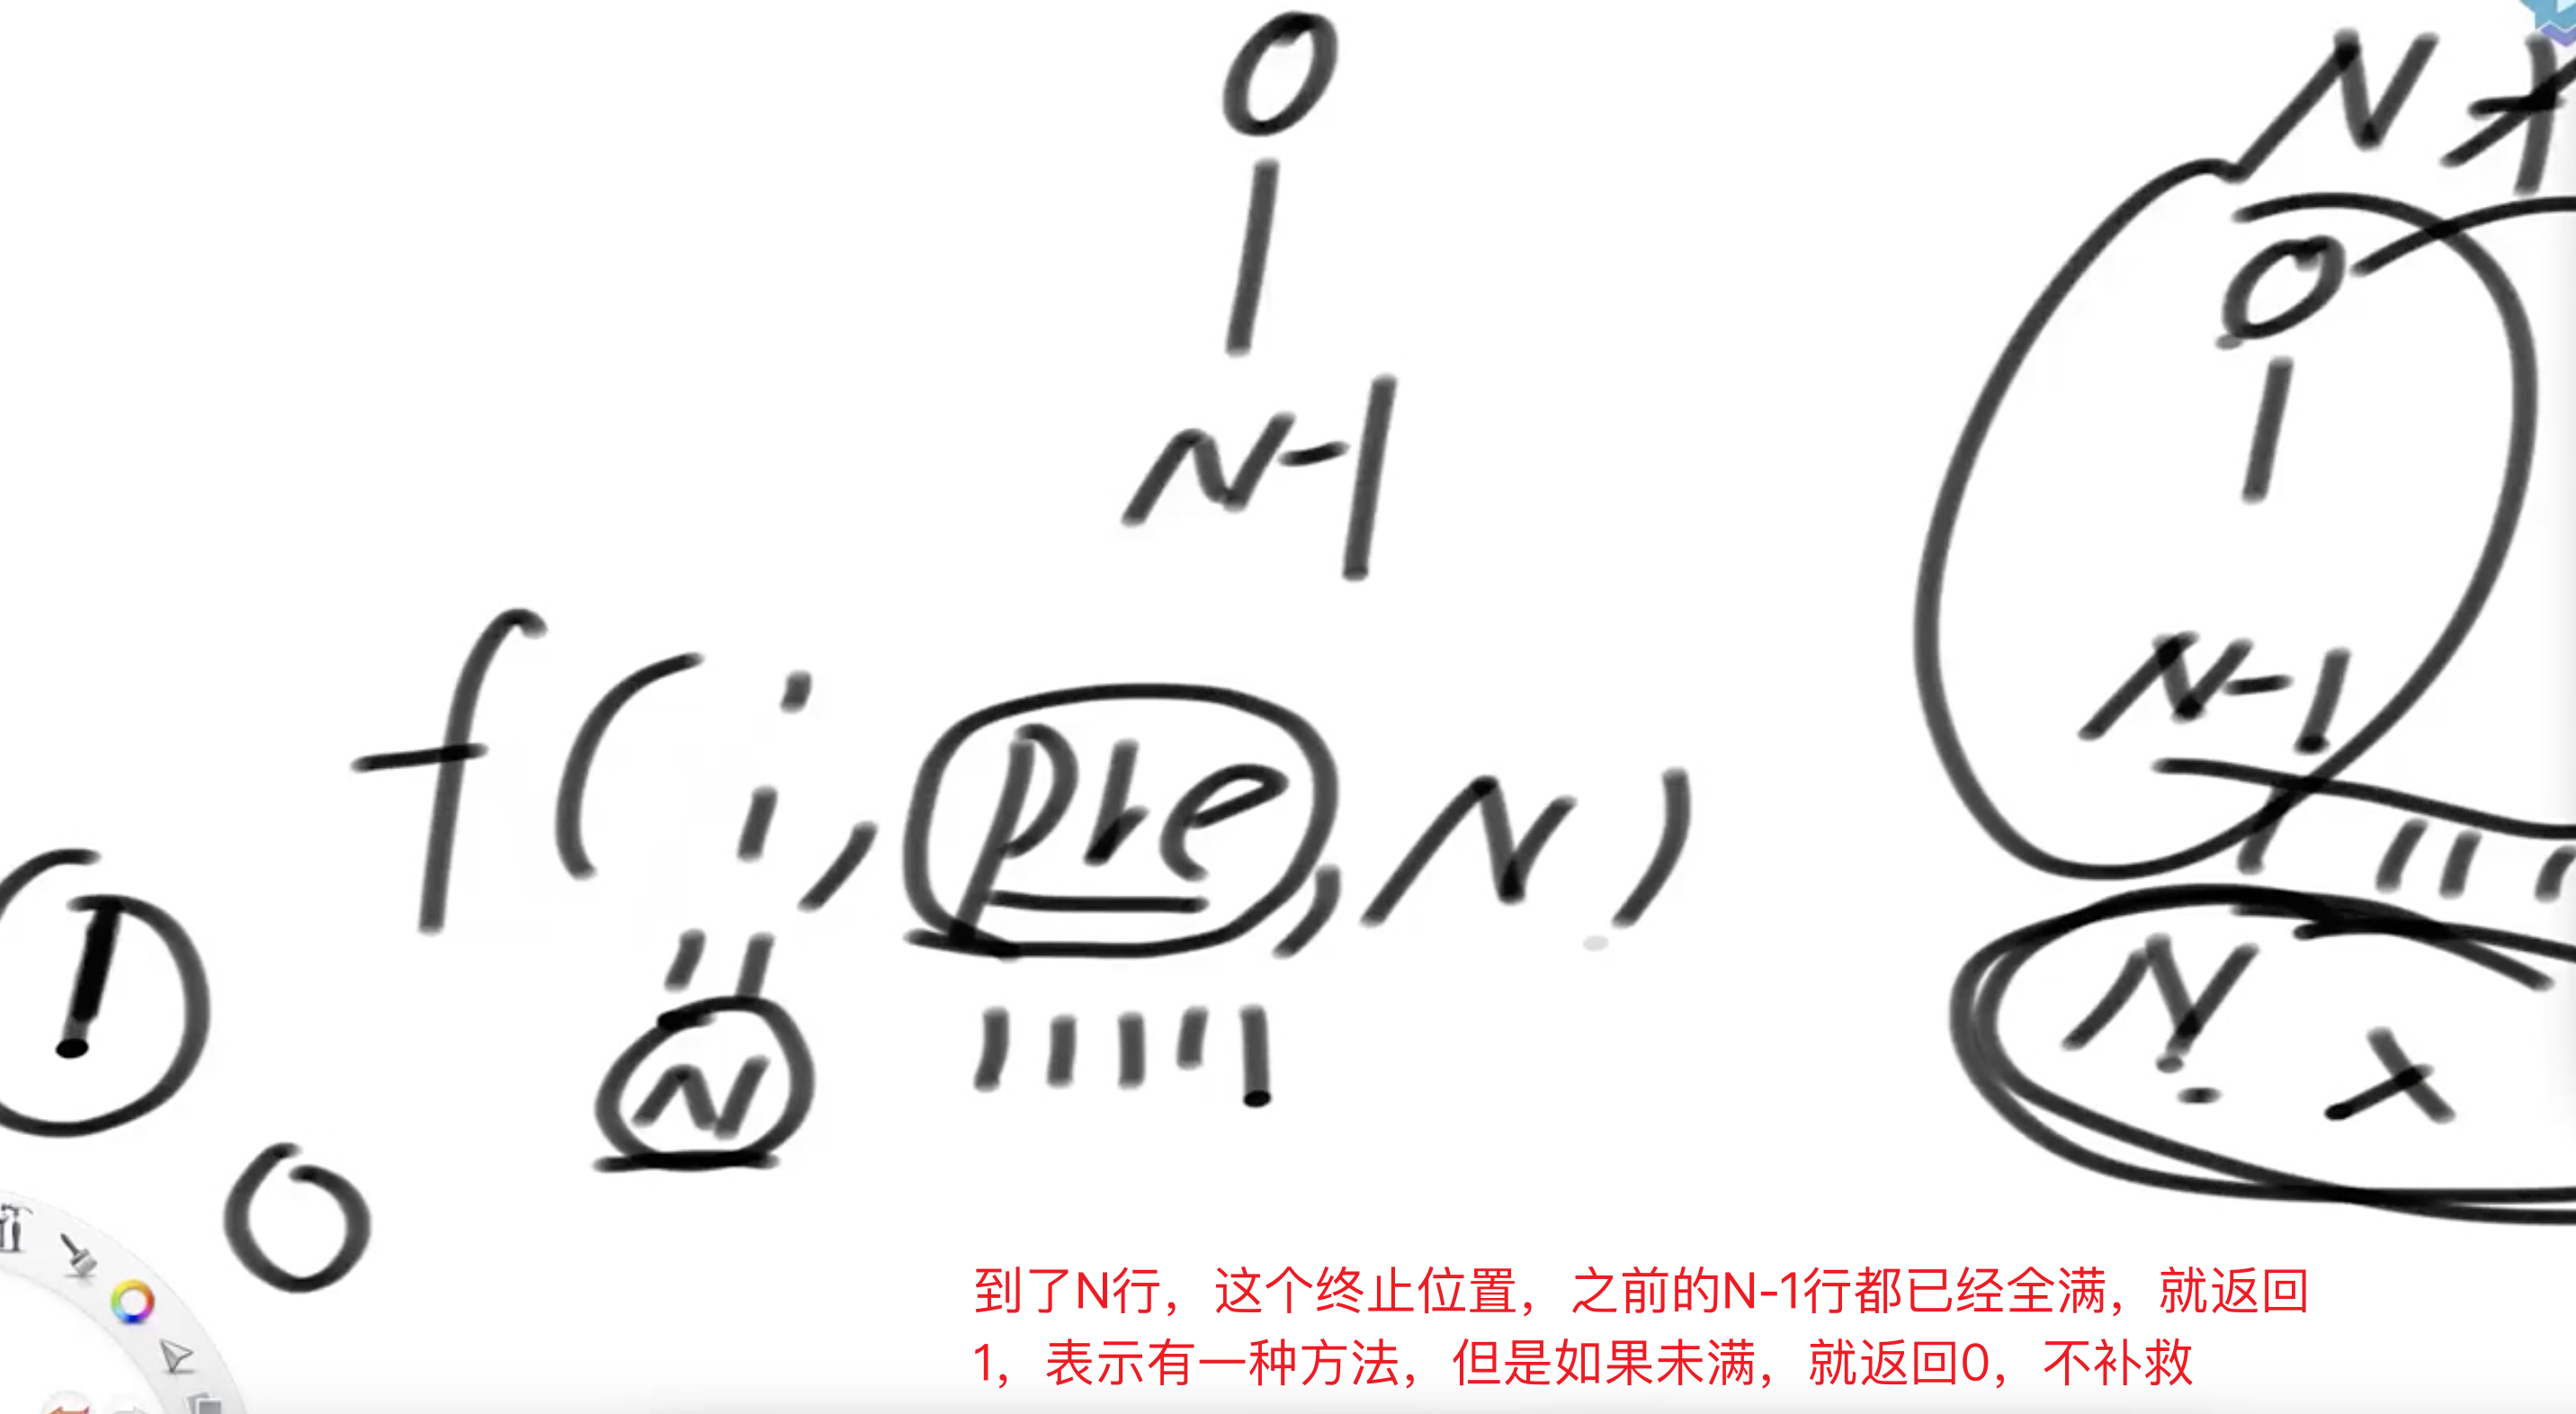 0
|
N-1
f(i, pre, N)
" N
1 1 1 1 1
1
0
N ×
0
|
N-1
N ×
到了N行，这个终止位置，之前的N-1行都已经全满，就返回
1，表示有一种方法，但是如果未满，就返回0，不补救